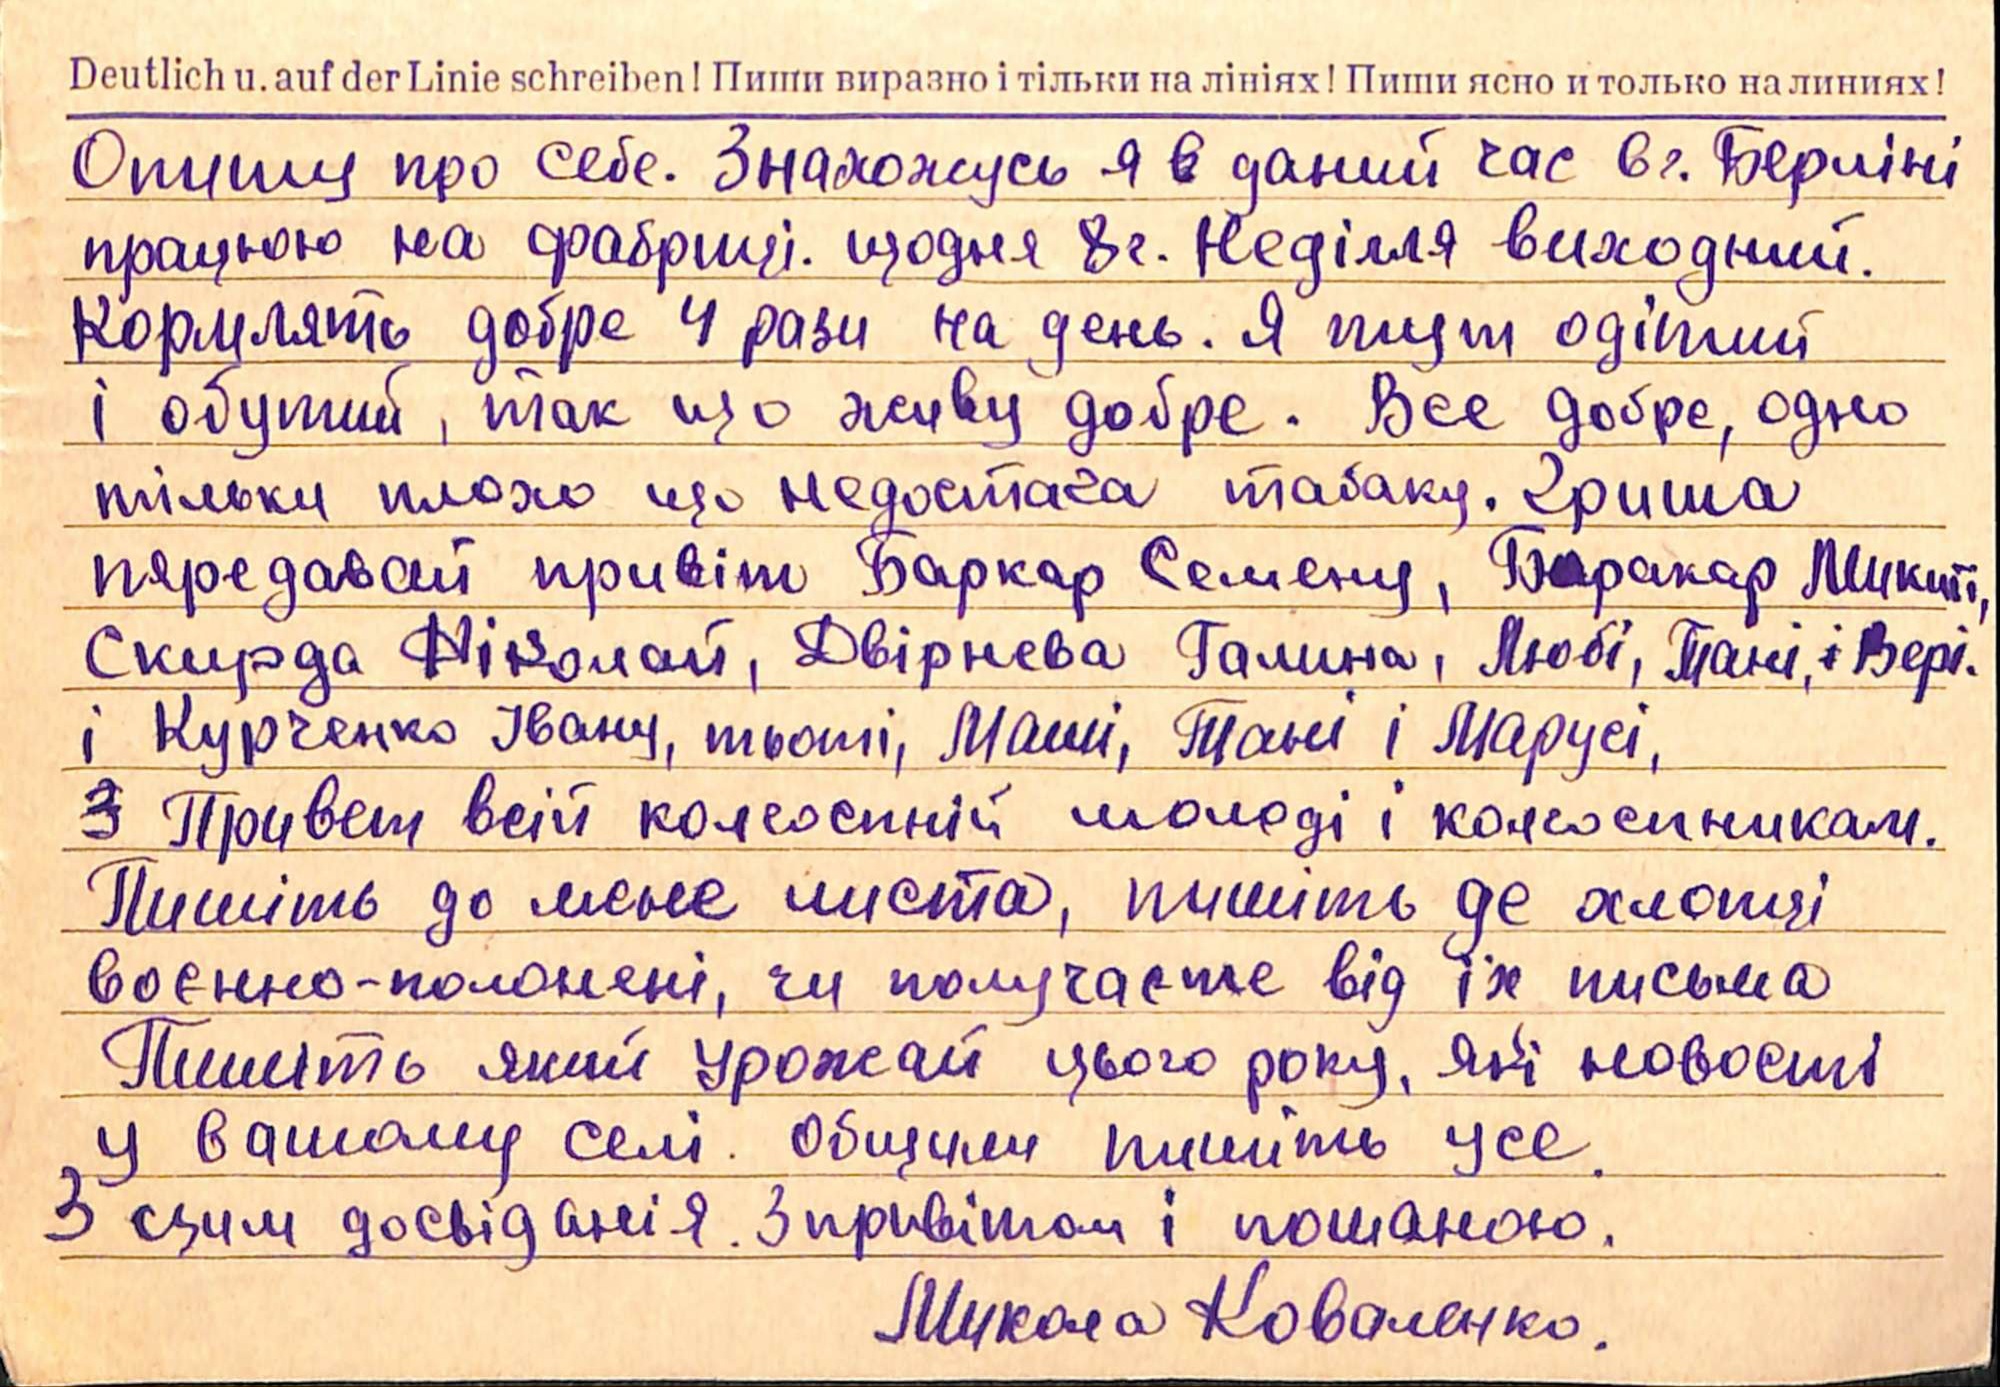 Deutlich u. auf der Linie schreiben! Пиши виразно і тільки на лініях! Пиши ясно и только на линиях!
Опишу про себе. Знахожусь я в даний час в г. Берліні
працюю на фабриці. щодня 8 г. Неділля виходний.
Кормлять добре 4 рази на день. Я тут одітий
і обутий, так що живу добре. Все добре, одно
тільки плохо що недостача табаку. Гриша
пяредавай привіт Баркар Семену, Баракар Микиті,
Скирда Ніколай, Двірнєва Галина, Любі, Тані, і Вері.
і Курченко Івану, тьоті, Маші, Тані і Марусі,
З Привет всій колгоспній молоді і колгоспникам.
Пишіть до мене листа, пишіть де хлопці
воєнно-полонені, чи получаєте від їх письма
Пишіть який урожай цього року, які новості
у вашому селі. Общим пишіть усе.
З сцим досвіданія. З привітом і пошаною.
Микола Коваленко.